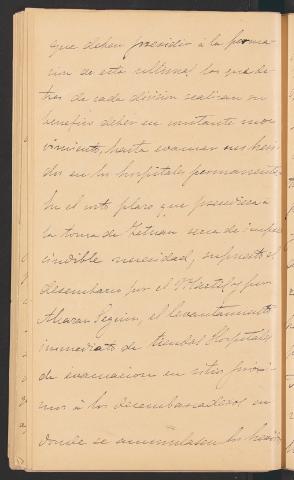 que deben presidir á la forma-
cion de esta última, los
de cada division realizan su
beneficio deber en constante mo-
vimiento, hasta evacuar sus heri-
dos en los hospitales permanentes.
En el corto plazo que preceda á
la toma de Tetuan sera de impres-
cindible necesidad, supuesto el
desembarco por el Martil y por
Alcazar Seguir, el levantamiento
inmediato de tiendas Hospitales
de evacuacion en sitios próxi-
mos á los desembarcaderos en
donde se acumulasen los heridos